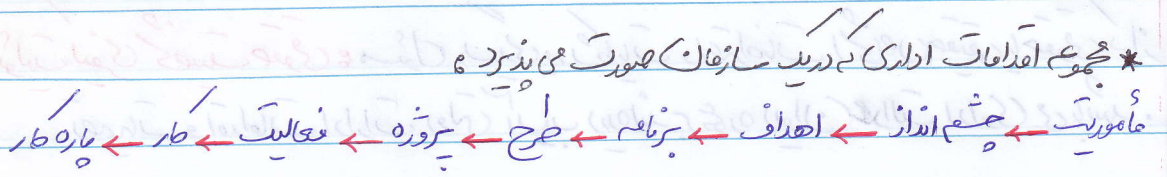 * مجموعه اقدامات اداری که در یک سازمان صورت می پذیرد:
مأموریت ← چشم انداز ← اهداف ← برنامه ← طرح ← پروژه ← فعالیت ← کار ← پاره کار